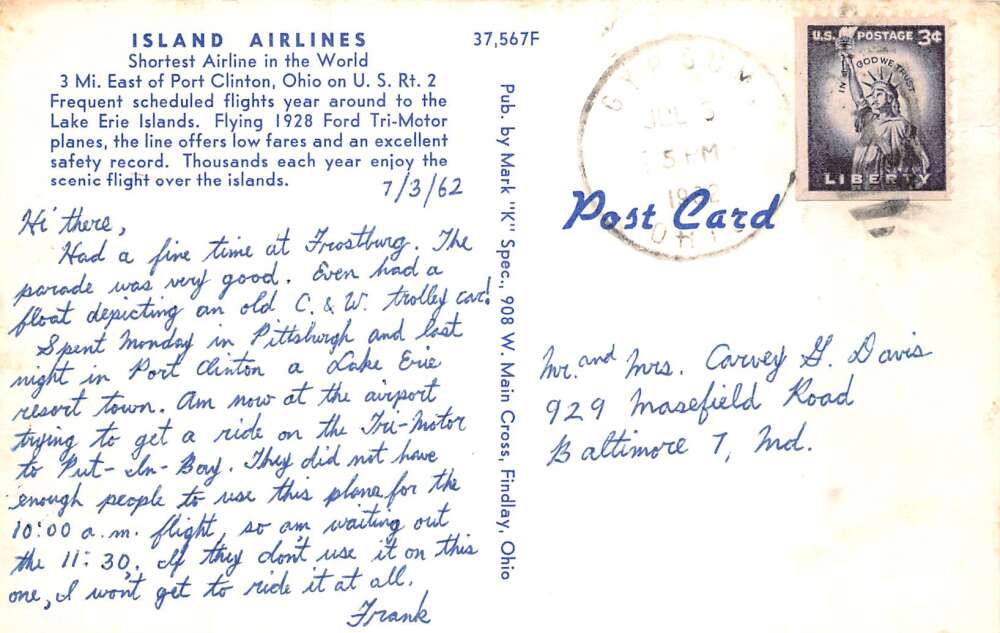 ISLAND AIRLINES
Shortest Airline in the World
3 Mi. East of Port Clinton, Ohio on U. S. Rt. 2
Frequent scheduled flights year around to the
Lake Erie Islands. Flying 1928 Ford Tri-Motor
planes, the line offers low fares and an excellent
safety record. Thousands each year enjoy the
scenic flight over the islands.
7/3/62
Hi there,
Had a fine time at Frostburg. The
parade was very good. Even had a
float depicting an old C. & W. trolley car!
Spent Monday in Pittsburgh and last
night in Port Clinton a Lake Erie
resort town. Am now at the airport
trying to get a ride on the Tri-Motor
to Put-In-Bay. They did not have
enough people to use this plane for the
10:00 a.m. flight, so am waiting out
the 11:30. If they don't use it on this
one, I won't get to ride it at all.
Frank
37,567F
Pub. by Mark "K" Spec., 908 W. Main Cross, Findlay, Ohio
GYPSUM
JUL 3
5 PM
OHIO
U.S. POSTAGE 3¢
IN GOD WE TRUST
LIBERTY
Post Card
Mr. and Mrs. Carvey G. Davis
929 Masefield Road
Baltimore 7, Md.